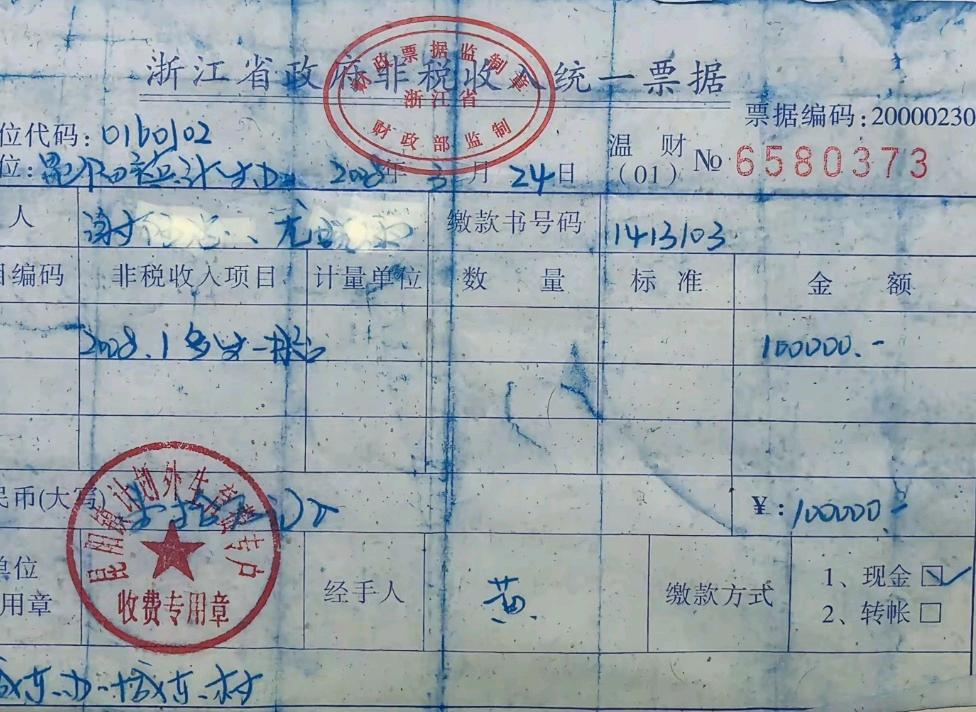 浙江省政府非税收入统一票据
财政票据监制章
浙江省
财政部监制
票据编码:20000230
位代码:0160102
位:昆阳 计生办 2008年3月24日
温财(01) № 6580373
人 谢 、尤 缴款书号码 1413103
目编码 非税收入项目 计量单位 数量 标准 金额
2008.1多生一孩 100000.-
民币(大写) 壹拾万 ¥:100000-
昆阳镇计划外生育费专户
收费专用章
单位
用章
经手人 黄 缴款方式 1、现金☑
2、转帐□